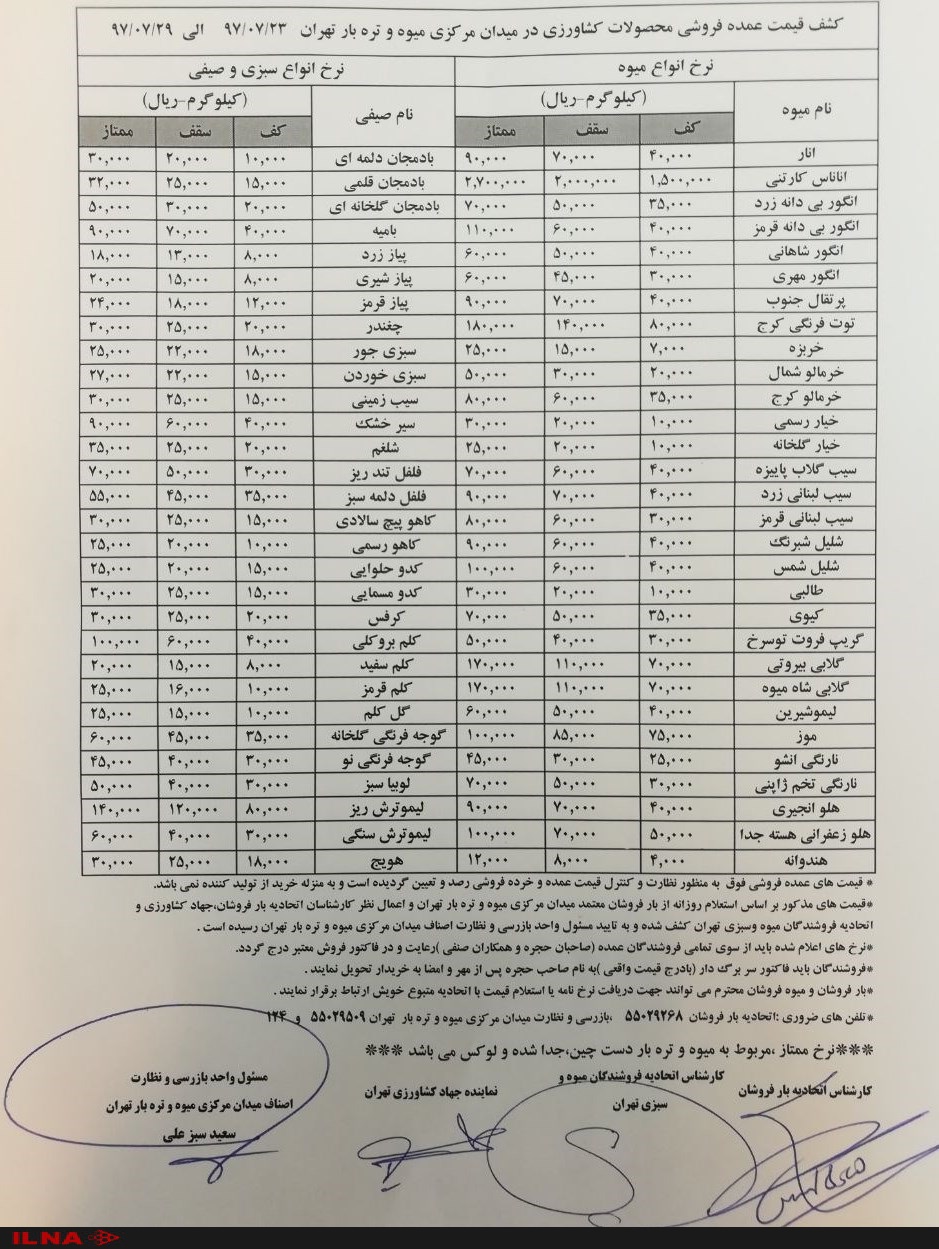 کشف قیمت عمده فروشی محصولات کشاورزی در میدان مرکزی میوه و تره بار تهران ۹۷/۰۷/۲۳ الی ۹۷/۰۷/۲۹
نرخ انواع میوه نرخ انواع سبزی و صیفی
نام میوه (کیلوگرم-ریال) نام صیفی (کیلوگرم-ریال)
کف سقف ممتاز کف سقف ممتاز
انار ۴۰,۰۰۰ ۷۰,۰۰۰ ۹۰,۰۰۰ بادمجان دلمه ای ۱۰,۰۰۰ ۲۰,۰۰۰ ۳۰,۰۰۰
اناناس کارتنی ۱,۵۰۰,۰۰۰ ۲,۰۰۰,۰۰۰ ۲,۷۰۰,۰۰۰ بادمجان قلمی ۱۵,۰۰۰ ۲۵,۰۰۰ ۳۲,۰۰۰
انگور بی دانه زرد ۳۵,۰۰۰ ۵۰,۰۰۰ ۷۰,۰۰۰ بادمجان گلخانه ای ۲۰,۰۰۰ ۳۰,۰۰۰ ۵۰,۰۰۰
انگور بی دانه قرمز ۴۰,۰۰۰ ۶۰,۰۰۰ ۱۱۰,۰۰۰ بامیه ۴۰,۰۰۰ ۷۰,۰۰۰ ۹۰,۰۰۰
انگور شاهانی ۴۰,۰۰۰ ۵۰,۰۰۰ ۶۰,۰۰۰ پیاز زرد ۸,۰۰۰ ۱۳,۰۰۰ ۱۸,۰۰۰
انگور مهری ۳۰,۰۰۰ ۴۵,۰۰۰ ۶۰,۰۰۰ پیاز شیری ۸,۰۰۰ ۱۵,۰۰۰ ۲۰,۰۰۰
پرتقال جنوب ۴۰,۰۰۰ ۷۰,۰۰۰ ۹۰,۰۰۰ پیاز قرمز ۱۲,۰۰۰ ۱۸,۰۰۰ ۲۴,۰۰۰
توت فرنگی کرج ۸۰,۰۰۰ ۱۴۰,۰۰۰ ۱۸۰,۰۰۰ چغندر ۲۰,۰۰۰ ۲۵,۰۰۰ ۳۰,۰۰۰
خربزه ۷,۰۰۰ ۱۵,۰۰۰ ۲۵,۰۰۰ سبزی جور ۱۸,۰۰۰ ۲۲,۰۰۰ ۲۵,۰۰۰
خرمالو شمال ۲۰,۰۰۰ ۳۰,۰۰۰ ۵۰,۰۰۰ سبزی خوردن ۱۵,۰۰۰ ۲۲,۰۰۰ ۲۷,۰۰۰
خرمالو کرج ۳۵,۰۰۰ ۶۰,۰۰۰ ۸۰,۰۰۰ سیب زمینی ۱۵,۰۰۰ ۲۵,۰۰۰ ۳۰,۰۰۰
خیار رسمی ۱۰,۰۰۰ ۲۰,۰۰۰ ۳۰,۰۰۰ سیر خشک ۴۰,۰۰۰ ۶۰,۰۰۰ ۹۰,۰۰۰
خیار گلخانه ۱۰,۰۰۰ ۲۰,۰۰۰ ۲۵,۰۰۰ شلغم ۲۰,۰۰۰ ۲۵,۰۰۰ ۳۵,۰۰۰
سیب گلاب پاییزه ۴۰,۰۰۰ ۶۰,۰۰۰ ۷۰,۰۰۰ فلفل تند ریز ۳۰,۰۰۰ ۵۰,۰۰۰ ۷۰,۰۰۰
سیب لبنانی زرد ۴۰,۰۰۰ ۷۰,۰۰۰ ۹۰,۰۰۰ فلفل دلمه سبز ۳۵,۰۰۰ ۴۵,۰۰۰ ۵۵,۰۰۰
سیب لبنانی قرمز ۳۰,۰۰۰ ۶۰,۰۰۰ ۸۰,۰۰۰ کاهو پیچ سالادی ۱۵,۰۰۰ ۲۵,۰۰۰ ۳۰,۰۰۰
شلیل شبرنگ ۴۰,۰۰۰ ۶۰,۰۰۰ ۹۰,۰۰۰ کاهو رسمی ۱۰,۰۰۰ ۲۰,۰۰۰ ۲۵,۰۰۰
شلیل شمس ۴۰,۰۰۰ ۶۰,۰۰۰ ۱۰۰,۰۰۰ کدو حلوایی ۱۵,۰۰۰ ۲۰,۰۰۰ ۲۵,۰۰۰
طالبی ۱۰,۰۰۰ ۲۰,۰۰۰ ۳۰,۰۰۰ کدو مسمایی ۱۵,۰۰۰ ۲۵,۰۰۰ ۳۰,۰۰۰
کیوی ۳۵,۰۰۰ ۵۰,۰۰۰ ۷۰,۰۰۰ کرفس ۲۰,۰۰۰ ۲۵,۰۰۰ ۳۰,۰۰۰
گریپ فروت توسرخ ۳۰,۰۰۰ ۴۰,۰۰۰ ۵۰,۰۰۰ کلم بروکلی ۴۰,۰۰۰ ۶۰,۰۰۰ ۱۰۰,۰۰۰
گلابی بیروتی ۷۰,۰۰۰ ۱۱۰,۰۰۰ ۱۷۰,۰۰۰ کلم سفید ۸,۰۰۰ ۱۵,۰۰۰ ۲۰,۰۰۰
گلابی شاه میوه ۷۰,۰۰۰ ۱۱۰,۰۰۰ ۱۷۰,۰۰۰ کلم قرمز ۱۰,۰۰۰ ۱۶,۰۰۰ ۲۵,۰۰۰
لیموشیرین ۴۰,۰۰۰ ۵۰,۰۰۰ ۶۰,۰۰۰ گل کلم ۱۰,۰۰۰ ۱۵,۰۰۰ ۲۵,۰۰۰
موز ۷۵,۰۰۰ ۸۵,۰۰۰ ۱۰۰,۰۰۰ گوجه فرنگی گلخانه ۳۵,۰۰۰ ۴۵,۰۰۰ ۶۰,۰۰۰
نارنگی انشو ۲۵,۰۰۰ ۳۰,۰۰۰ ۴۵,۰۰۰ گوجه فرنگی نو ۳۰,۰۰۰ ۴۰,۰۰۰ ۴۵,۰۰۰
نارنگی تخم ژاپنی ۳۰,۰۰۰ ۵۰,۰۰۰ ۷۰,۰۰۰ لوبیا سبز ۳۰,۰۰۰ ۴۰,۰۰۰ ۵۰,۰۰۰
هلو انجیری ۴۰,۰۰۰ ۷۰,۰۰۰ ۹۰,۰۰۰ لیموترش ریز ۸۰,۰۰۰ ۱۲۰,۰۰۰ ۱۴۰,۰۰۰
هلو زعفرانی هسته جدا ۵۰,۰۰۰ ۷۰,۰۰۰ ۱۰۰,۰۰۰ لیموترش سنگی ۳۰,۰۰۰ ۴۰,۰۰۰ ۶۰,۰۰۰
هندوانه ۴,۰۰۰ ۸,۰۰۰ ۱۲,۰۰۰ هویج ۱۸,۰۰۰ ۲۵,۰۰۰ ۳۰,۰۰۰
* قیمت های عمده فروشی فوق به منظور نظارت و کنترل قیمت عمده و خرده فروشی رصد و تعیین گردیده است و به منزله خرید از تولید کننده نمی باشد.
*قیمت های مذکور بر اساس استعلام روزانه از بار فروشان معتمد میدان مرکزی میوه و تره بار تهران و اعمال نظر کارشناسان اتحادیه بار فروشان،جهاد کشاورزی و
اتحادیه فروشندگان میوه وسبزی تهران کشف شده و به تایید مسئول واحد بازرسی و نظارت اصناف میدان مرکزی میوه و تره بار تهران رسیده است .
*نرخ های اعلام شده باید از سوی تمامی فروشندگان عمده (صاحبان حجره و همکاران صنفی )رعایت و در فاکتور فروش معتبر درج گردد.
*فروشندگان باید فاکتور سر برگ دار (بادرج قیمت واقعی )به نام صاحب حجره پس از مهر و امضا به خریدار تحویل نمایند .
*بار فروشان و میوه فروشان محترم می توانند جهت دریافت نرخ نامه یا استعلام قیمت با اتحادیه متبوع خویش ارتباط برقرار نمایند .
*تلفن های ضروری :اتحادیه بار فروشان ۵۵۰۲۹۲۶۸ ،بازرسی و نظارت میدان مرکزی میوه و تره بار تهران ۵۵۰۲۹۵۰۹ و ۱۲۴
***نرخ ممتاز ،مربوط به میوه و تره بار دست چین،جدا شده و لوکس می باشد ***
کارشناس اتحادیه بار فروشان
کارشناس اتحادیه فروشندگان میوه و
سبزی تهران
نماینده جهاد کشاورزی تهران
مسئول واحد بازرسی و نظارت
اصناف میدان مرکزی میوه و تره بار تهران
سعید سبز علی
ILNA